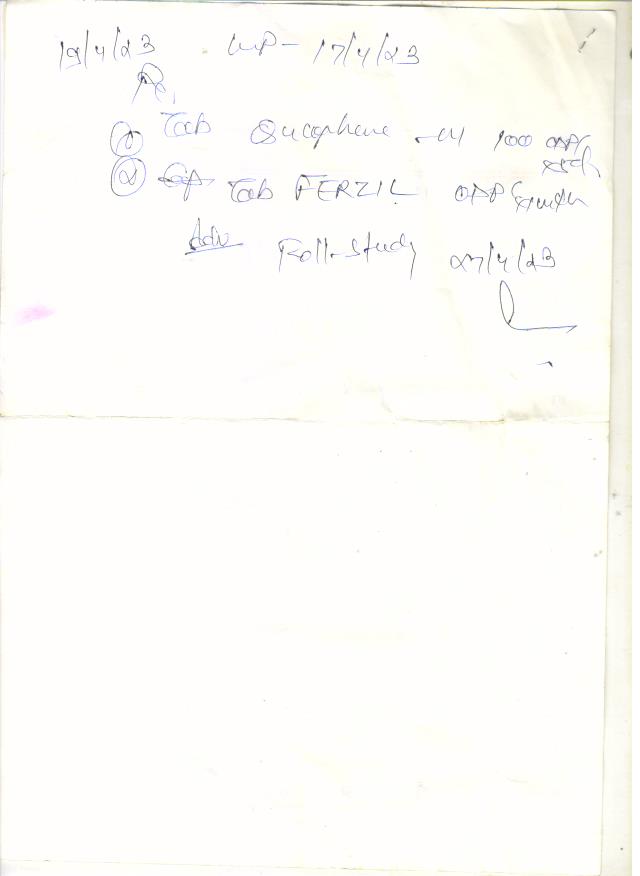 19/4/23 LMP - 17/4/23
Rx,
① Tab Ovcophene - M 100 ODPC
② Cap Tab FERZIL ODPC
Adv Foll-Study 27/4/23